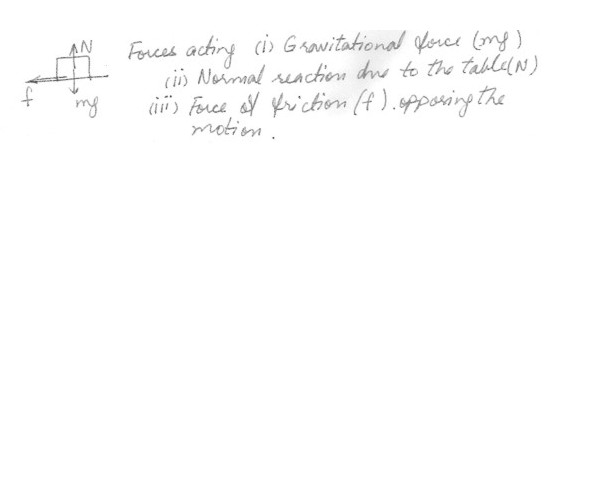 N
Forces acting (i) Gravitational force (mg)
(ii) Normal reaction due to the table (N)
f
mg
(iii) Force of friction (f). opposing the
motion.